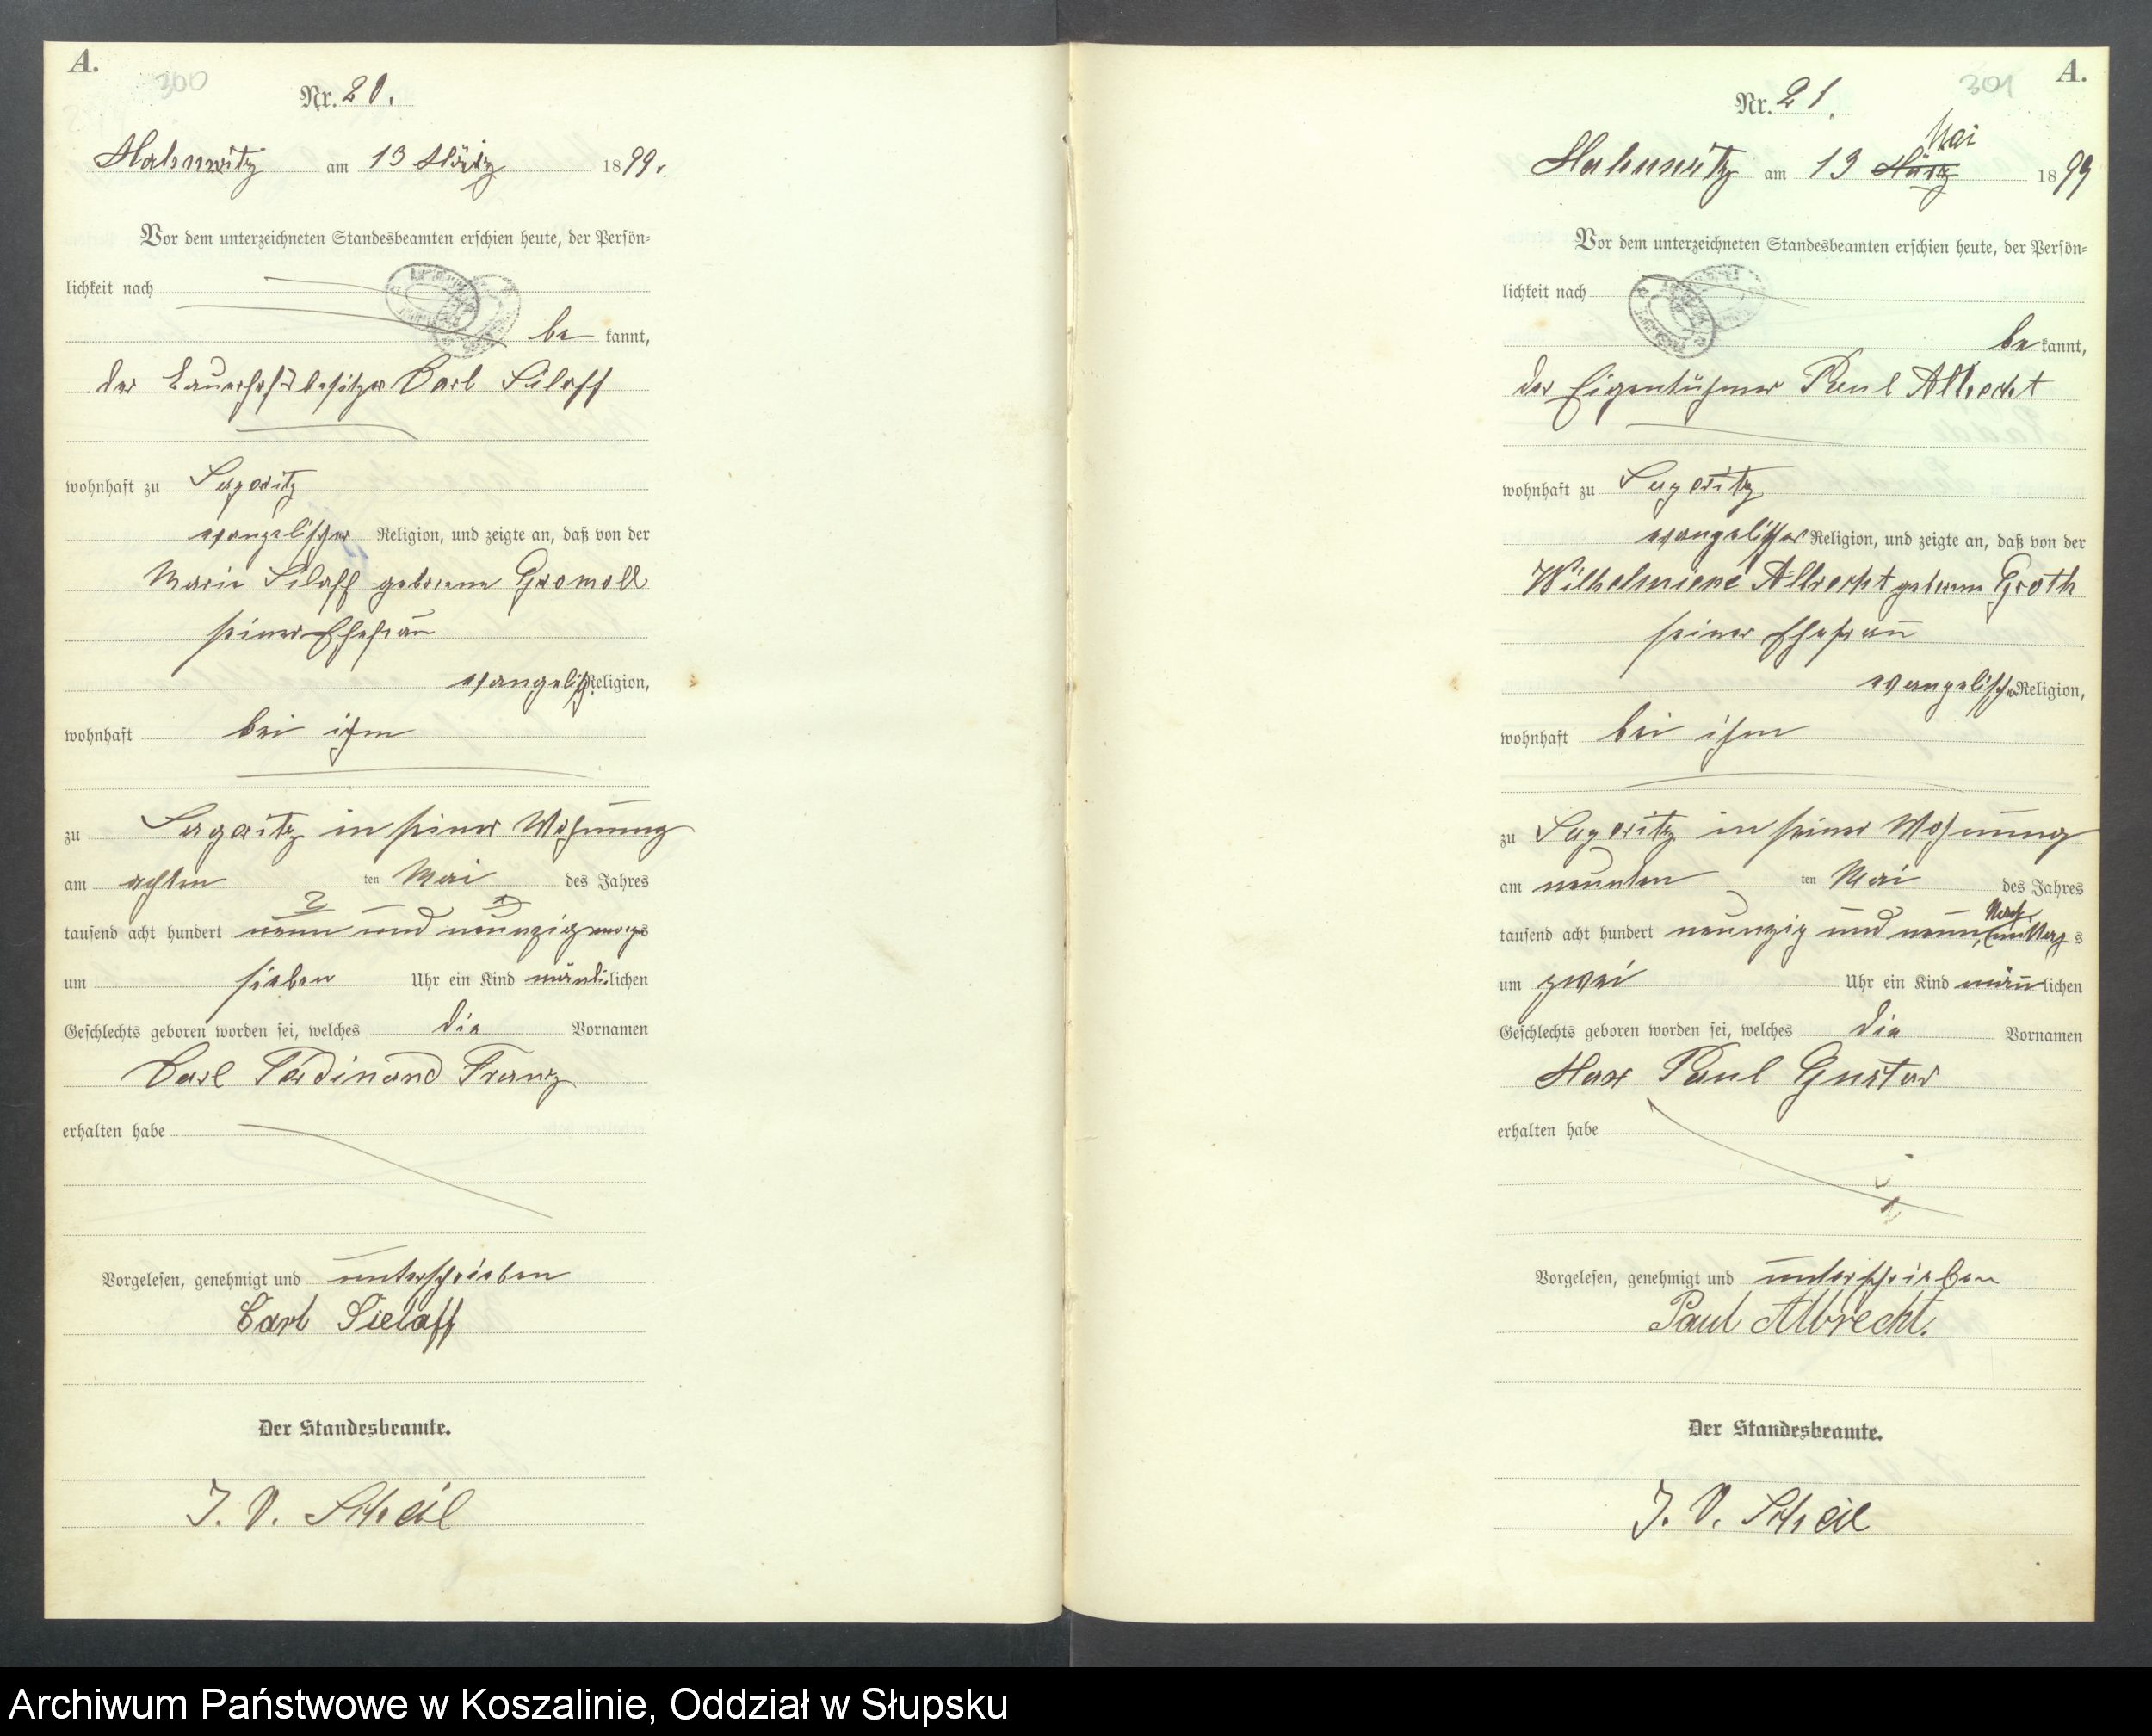 A.
300
Nr. 20.
Mahnwitz am 13 März 1899.
Vor dem unterzeichneten Standesbeamten erschien heute, der Persön-
lichkeit nach
be kannt,
der Bauerhofsbesitzer Carl Sielaff
wohnhaft zu Sageritz
evangelischer Religion, und zeigte an, daß von der
Marie Sielaff geborene Gromoll
seiner Ehefrau
evangelisch. Religion,
wohnhaft bei ihm
zu Sageritz in seiner Wohnung
am achten ten Mai des Jahres
tausend acht hundert neun und neunzig morgs
2 1
um sieben Uhr ein Kind männlichen
Geschlechts geboren worden sei, welches die Vornamen
Carl Ferdinand Franz
erhalten habe
Vorgelesen, genehmigt und unterschrieben
Carl Sielaff
Der Standesbeamte.
J. V. Scheil
A.
301
Nr. 21.
Mai
Mahnwitz am 13 März 1899
Vor dem unterzeichneten Standesbeamten erschien heute, der Persön-
lichkeit nach
be kannt,
der Eigentühmer Paul Albrecht
wohnhaft zu Sageritz
evangelischer Religion, und zeigte an, daß von der
Wilhelmiene Albrecht geborene Groth
seiner Ehefrau
evangelischer Religion,
wohnhaft bei ihm
zu Sageritz in seiner Wohnung
am neunten ten Mai des Jahres
Nach
tausend acht hundert neunzig und neun, mittag s
um zwei Uhr ein Kind männlichen
Geschlechts geboren worden sei, welches die Vornamen
Max Paul Gustav
erhalten habe
Vorgelesen, genehmigt und unterschrieben
Paul Albrecht.
Der Standesbeamte.
J. V. Scheil
Archiwum Państwowe w Koszalinie, Oddział w Słupsku